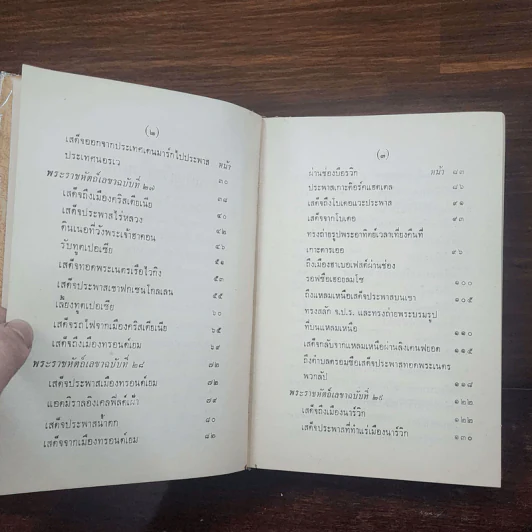 (๒)
หน้า
เสด็จออกจากประเทศเดนมาร์คไปประพาส
ประเทศนอรเว ๓๐
พระราชหัตถ์เลขาฉบับที่ ๒๗ ๓๔
เสด็จถึงเมืองคริสเตียเนีย ๔๐
เสด็จประพาสไร่หลวง ๔๒
ดินเนอที่วังพระเจ้าฮาคอน ๔๖
รับทูตเปอเซีย ๕๑
เสด็จทอดพระเนตรเรือไวกิง ๕๓
เสด็จประพาสเขาฟกเซนโคลเลน ๕๕
เลี้ยงทูตเปอเซีย ๖๕
เสด็จรถไฟจากเมืองคริสเตียเนีย ๖๕
เสด็จถึงเมืองทรอนด์เยม ๖๙
พระราชหัตถ์เลขาฉบับที่ ๒๘ ๗๒
เสด็จประพาสเมืองทรอนด์เยม ๗๒
แอดมิราลอิงเคลฟีลด์เฝ้า ๗๔
เสด็จประพาสน้ำตก ๘๐
เสด็จจากเมืองทรอนด์เยม ๘๒
(๓)
หน้า
ผ่านช่องบือรวิก ๘๓
ประพาสเกาะติอร์คแฮตเตล ๘๖
เสด็จถึงโบเดอแวะประพาส ๙๑
เสด็จจากโบเดอ ๙๓
ทรงถ่ายรูปพระอาทิตย์เวลาเที่ยงคืนที่
เกาะคาเรออ ๙๖
ถึงเมืองฮาเมอเฟสต์ผ่านช่อง
รอฟซือเฮออลมโซ
ถึงแหลมเหนือเสด็จประพาสบนเขา ๑๐๕
ทรงสลัก จ.ป.ร. และทรงถ่ายพระบรมรูป
ที่บนแหลมเหนือ ๑๑๐
เสด็จกลับจากแหลมเหนือผ่านลิงเคนฟยอด ๑๑๕
ถึงตำบลตรอมซือเสด็จประพาสทอดพระเนตร
พวกลัป ๑๑๘
พระราชหัตถ์เลขาฉบับที่ ๒๙ ๑๒๒
เสด็จถึงเมืองนาร์วิก ๑๒๒
เสด็จประพาสที่ท่าแร่เมืองนาร์วิก ๑๓๐